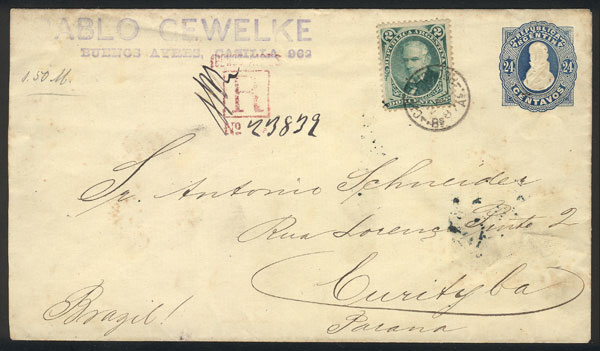 PABLO GEWELKE
BUENOS AYRES, CASILLA 902
1.50 M.
R
No 23839
2
REPUBLICA ARGENTINA
24 24
CENTAVOS
Sr. Antonio Schneider
Rua Lorenço Pinto 2
Curityba
Parana
Brazil!